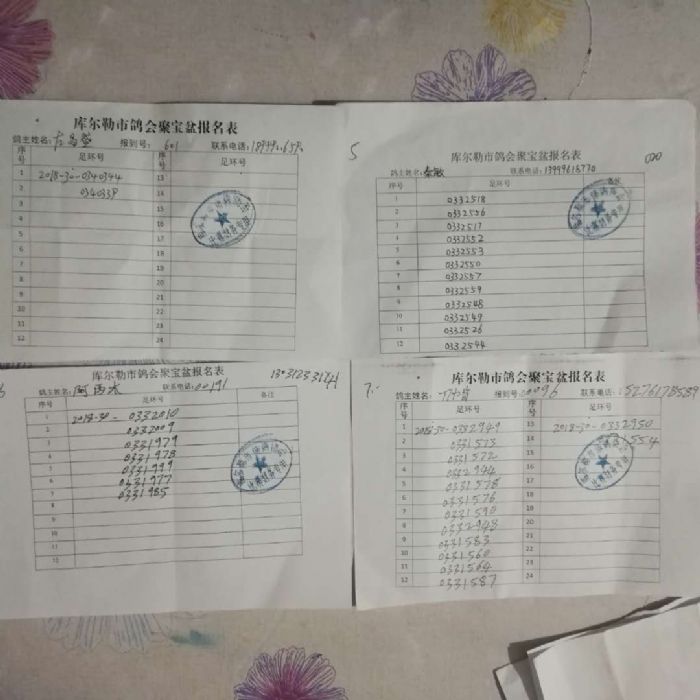 库尔勒市鸽会聚宝盆报名表
鸽主姓名: 报到号: 601 联系电话:
序号 足环号 序号 足环号
1 2018-30-0340344 13
2 0340339 14
3 15
4 16
5 17
6 18
7 19
8 20
9 21
10 22
11 23
12 24
5
库尔勒市鸽会聚宝盆报名表
020
鸽主姓名:余敏 联系电话:13999618770
序号 足环号 备注
1 0332518
2 0332556
3 0332517
4 0332552
5 0332553
6 0332550
7 0332557
8 0332559
9 0332548
10 0332549
11 0332526
12 0332544
6
库尔勒市鸽会聚宝盆报名表
鸽主姓名: 联系电话:00191
序号 足环号 备注
1 2018-30-0332010
2 0332009
3 0331979
4 0331978
5 0331999
6 0331977
7 0331985
8
9
10
11
12
7.
库尔勒市鸽会聚宝盆报名表
鸽主姓名: 报到号:00096 联系电话:15276178589
序号 足环号 序号 足环号
1 2018-30-0332949 13 2018-30-0332950
2 0331573 14 1554
3 0331572 15
4 0332944 16
5 0331578 17
6 0331576 18
7 0331590 19
8 0332948 20
9 0331583 21
10 0331560 22
11 0331564 23
12 0331587 24